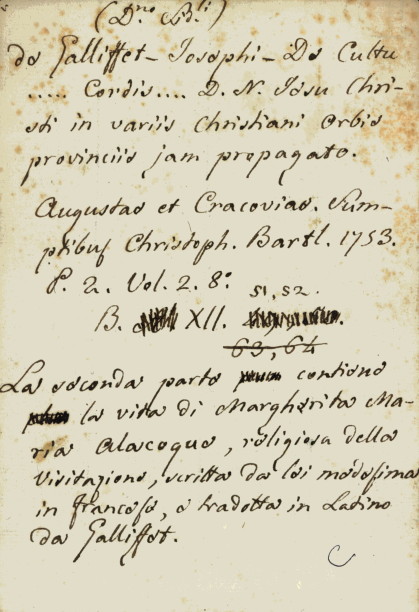 (D.no Bibl.i)
de Galliffet - Josephi - De Cultu
..... Cordis.... D. N. Jesu Chri-
sti in variis Christiani Orbis
provinciis jam propagato.
Augustae et Cracoviae. Sum-
ptibus Christoph. Bartl. 1753.
P. 2. Vol. 2. 8.o
51, 52.
B. XII.
63, 64
La seconda parte contiene
la vita di Margherita Ma-
ria Alacoque, religiosa della
Visitazione, scritta da lei medesima
in francese, e tradotta in Latino
da Galliffet.
C